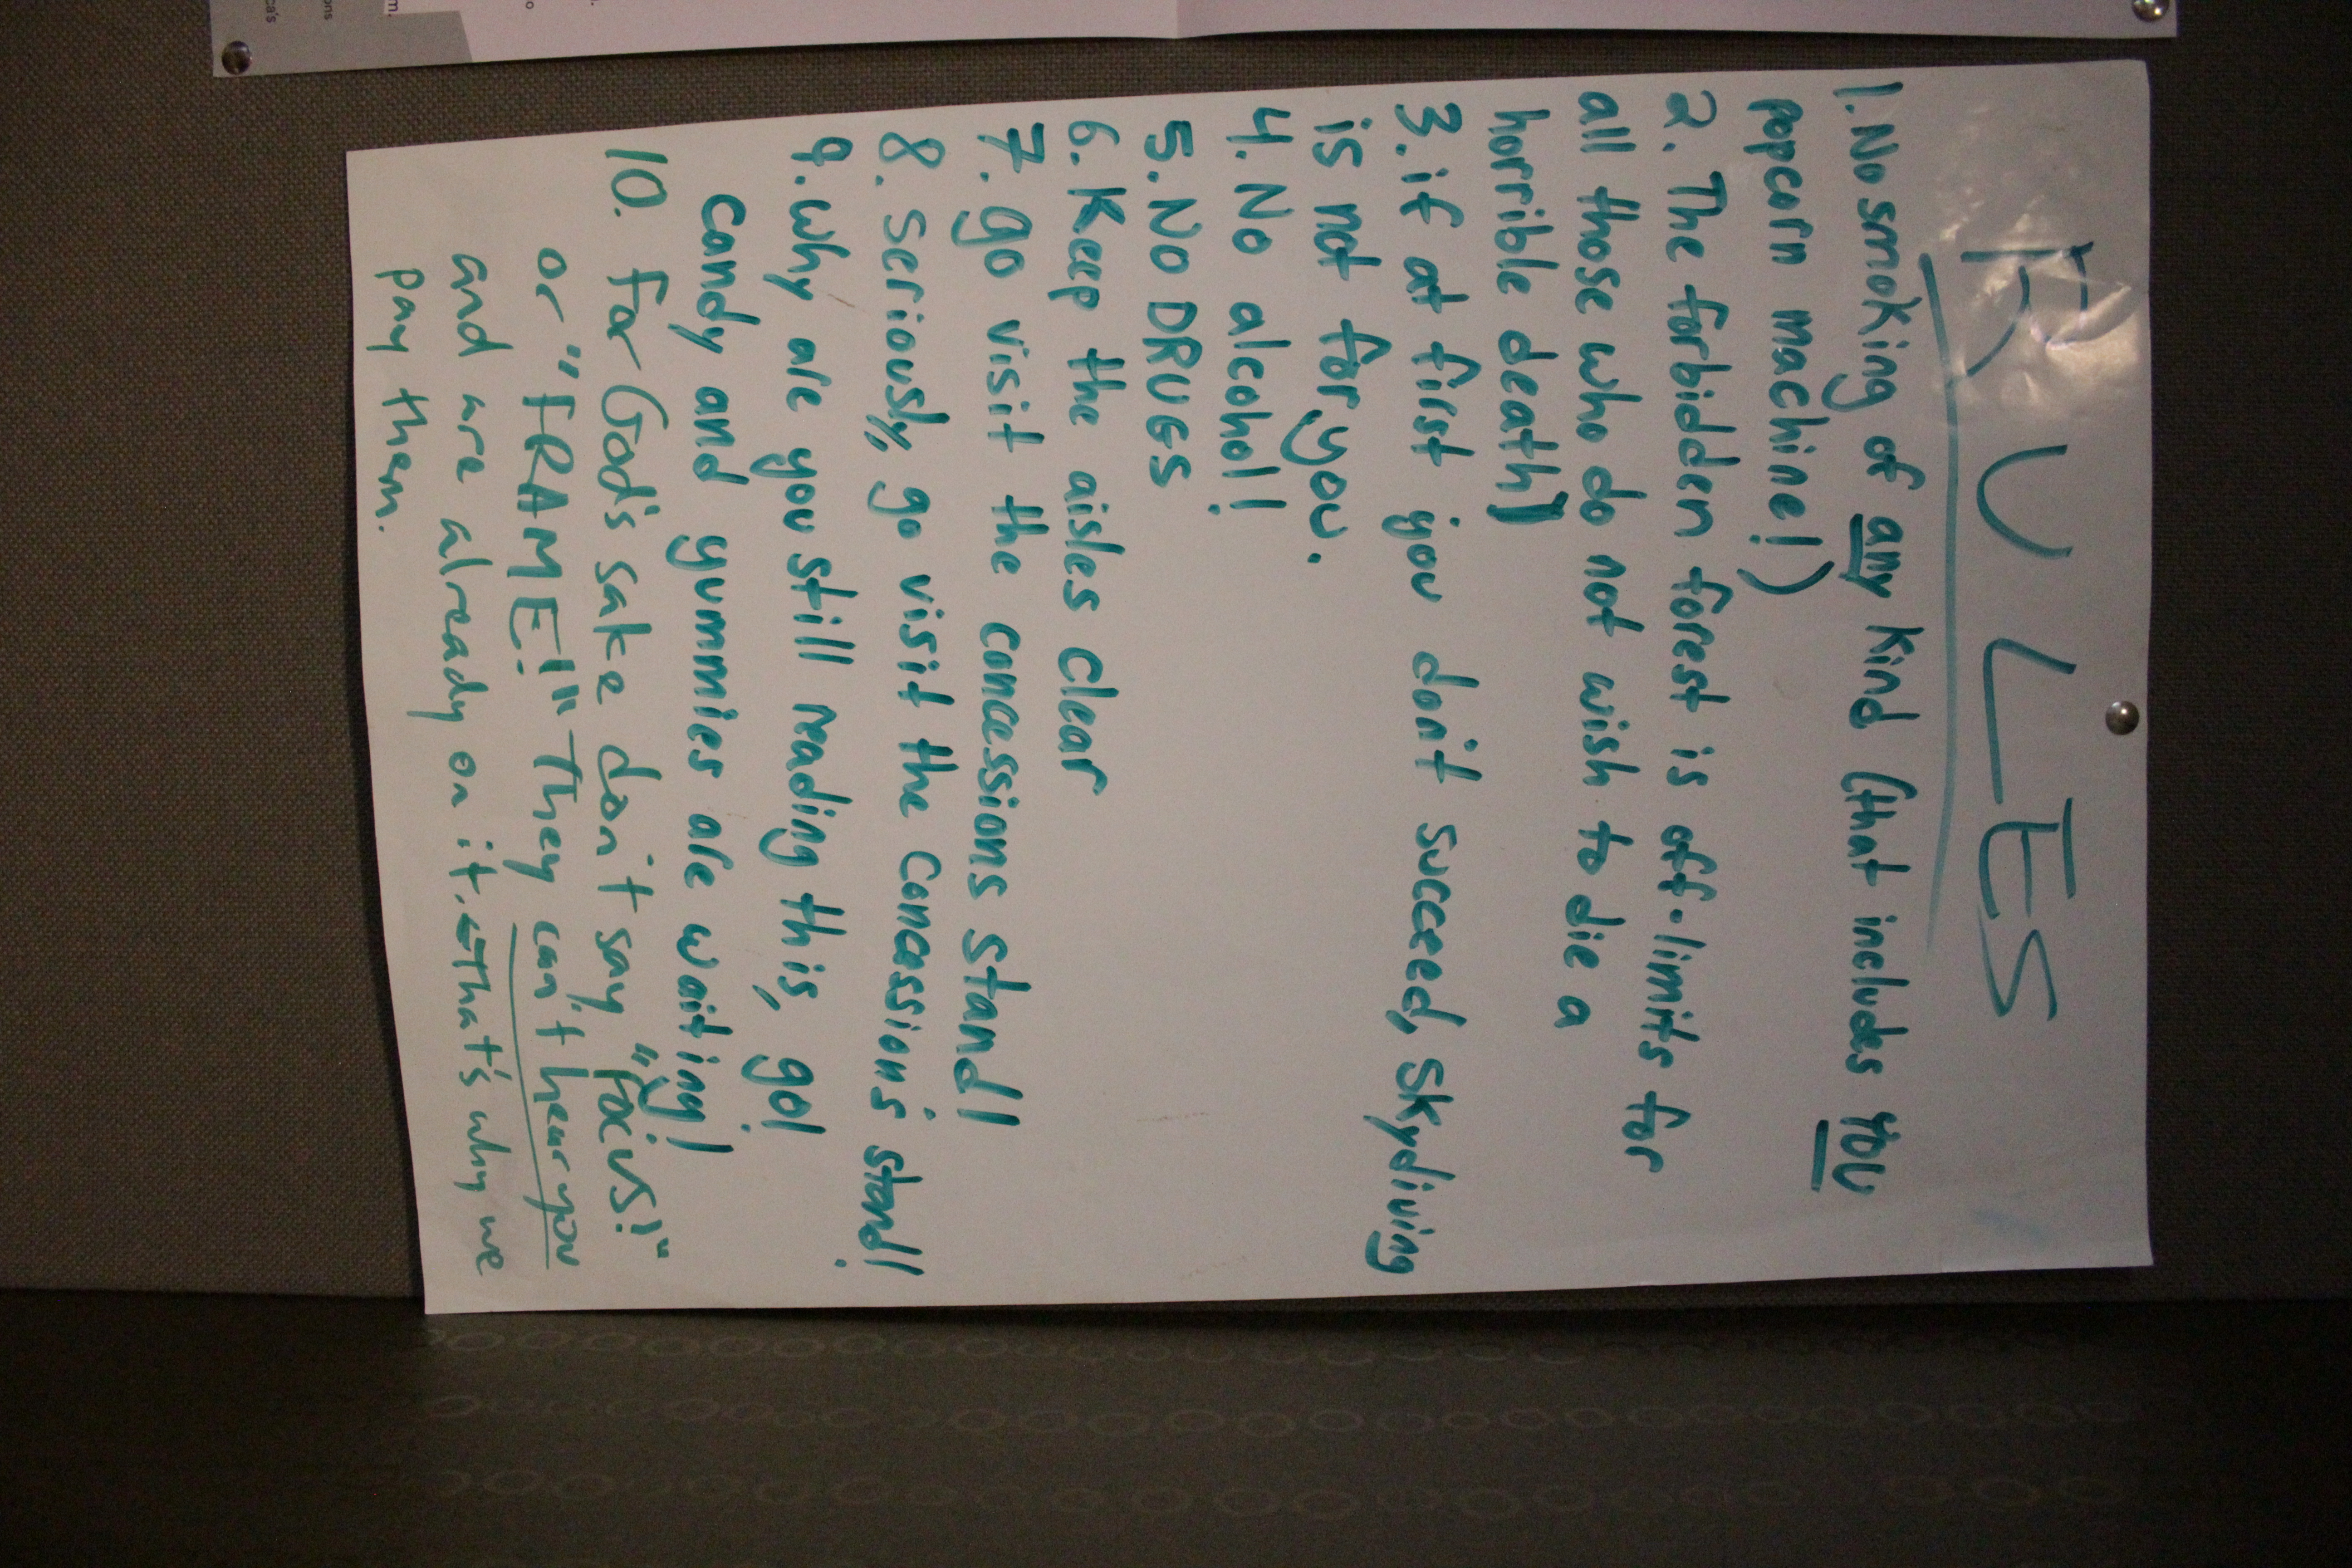 RULES
1. No smoking of any kind (that includes YOU
popcorn machine!)
2. The forbidden forest is off-limits for
all those who do not wish to die a
horrible death)
3. if at first you don't succeed, skydiving
is not for you.
4. No alcohol!
5. No DRUGS
6. Keep the aisles clear
7. go visit the concessions stand!
8. Seriously, go visit the concessions stand!
9. Why are you still reading this, go!
candy and gummies are waiting!
10. for God's sake don't say "Focus!"
or "FRAME!" They can't hear you
and are already on it. ← that's why we
pay them.
m.
ca's
ons